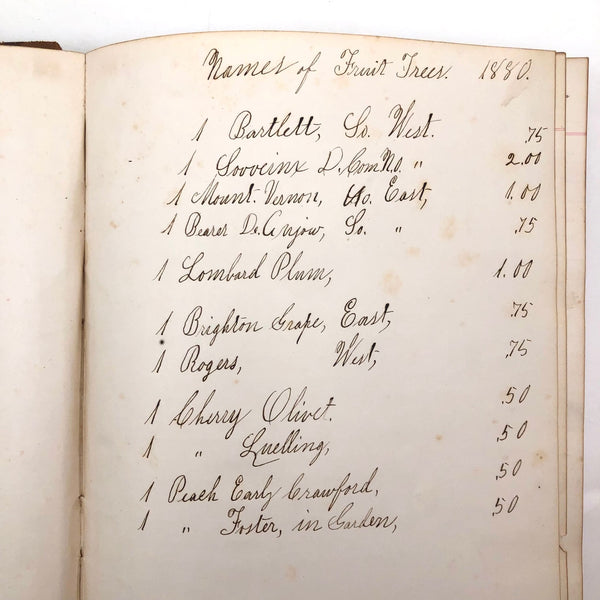 Names of Fruit Trees. 1880.
1 Bartlett, So. West. .75
1 Sooveinx D. Com No. " 2.00
1 Mount. Vernon, No. East, 1.00
1 Bearer De. Anjow, So. " .75
1 Lombard Plum, 1.00
1 Brighton Grape, East, .75
1 Rogers, West, .75
1 Cherry Olivet. .50
1 " Luelling, .50
1 Peach Early Crawford, .50
1 " Foster, in Garden, .50